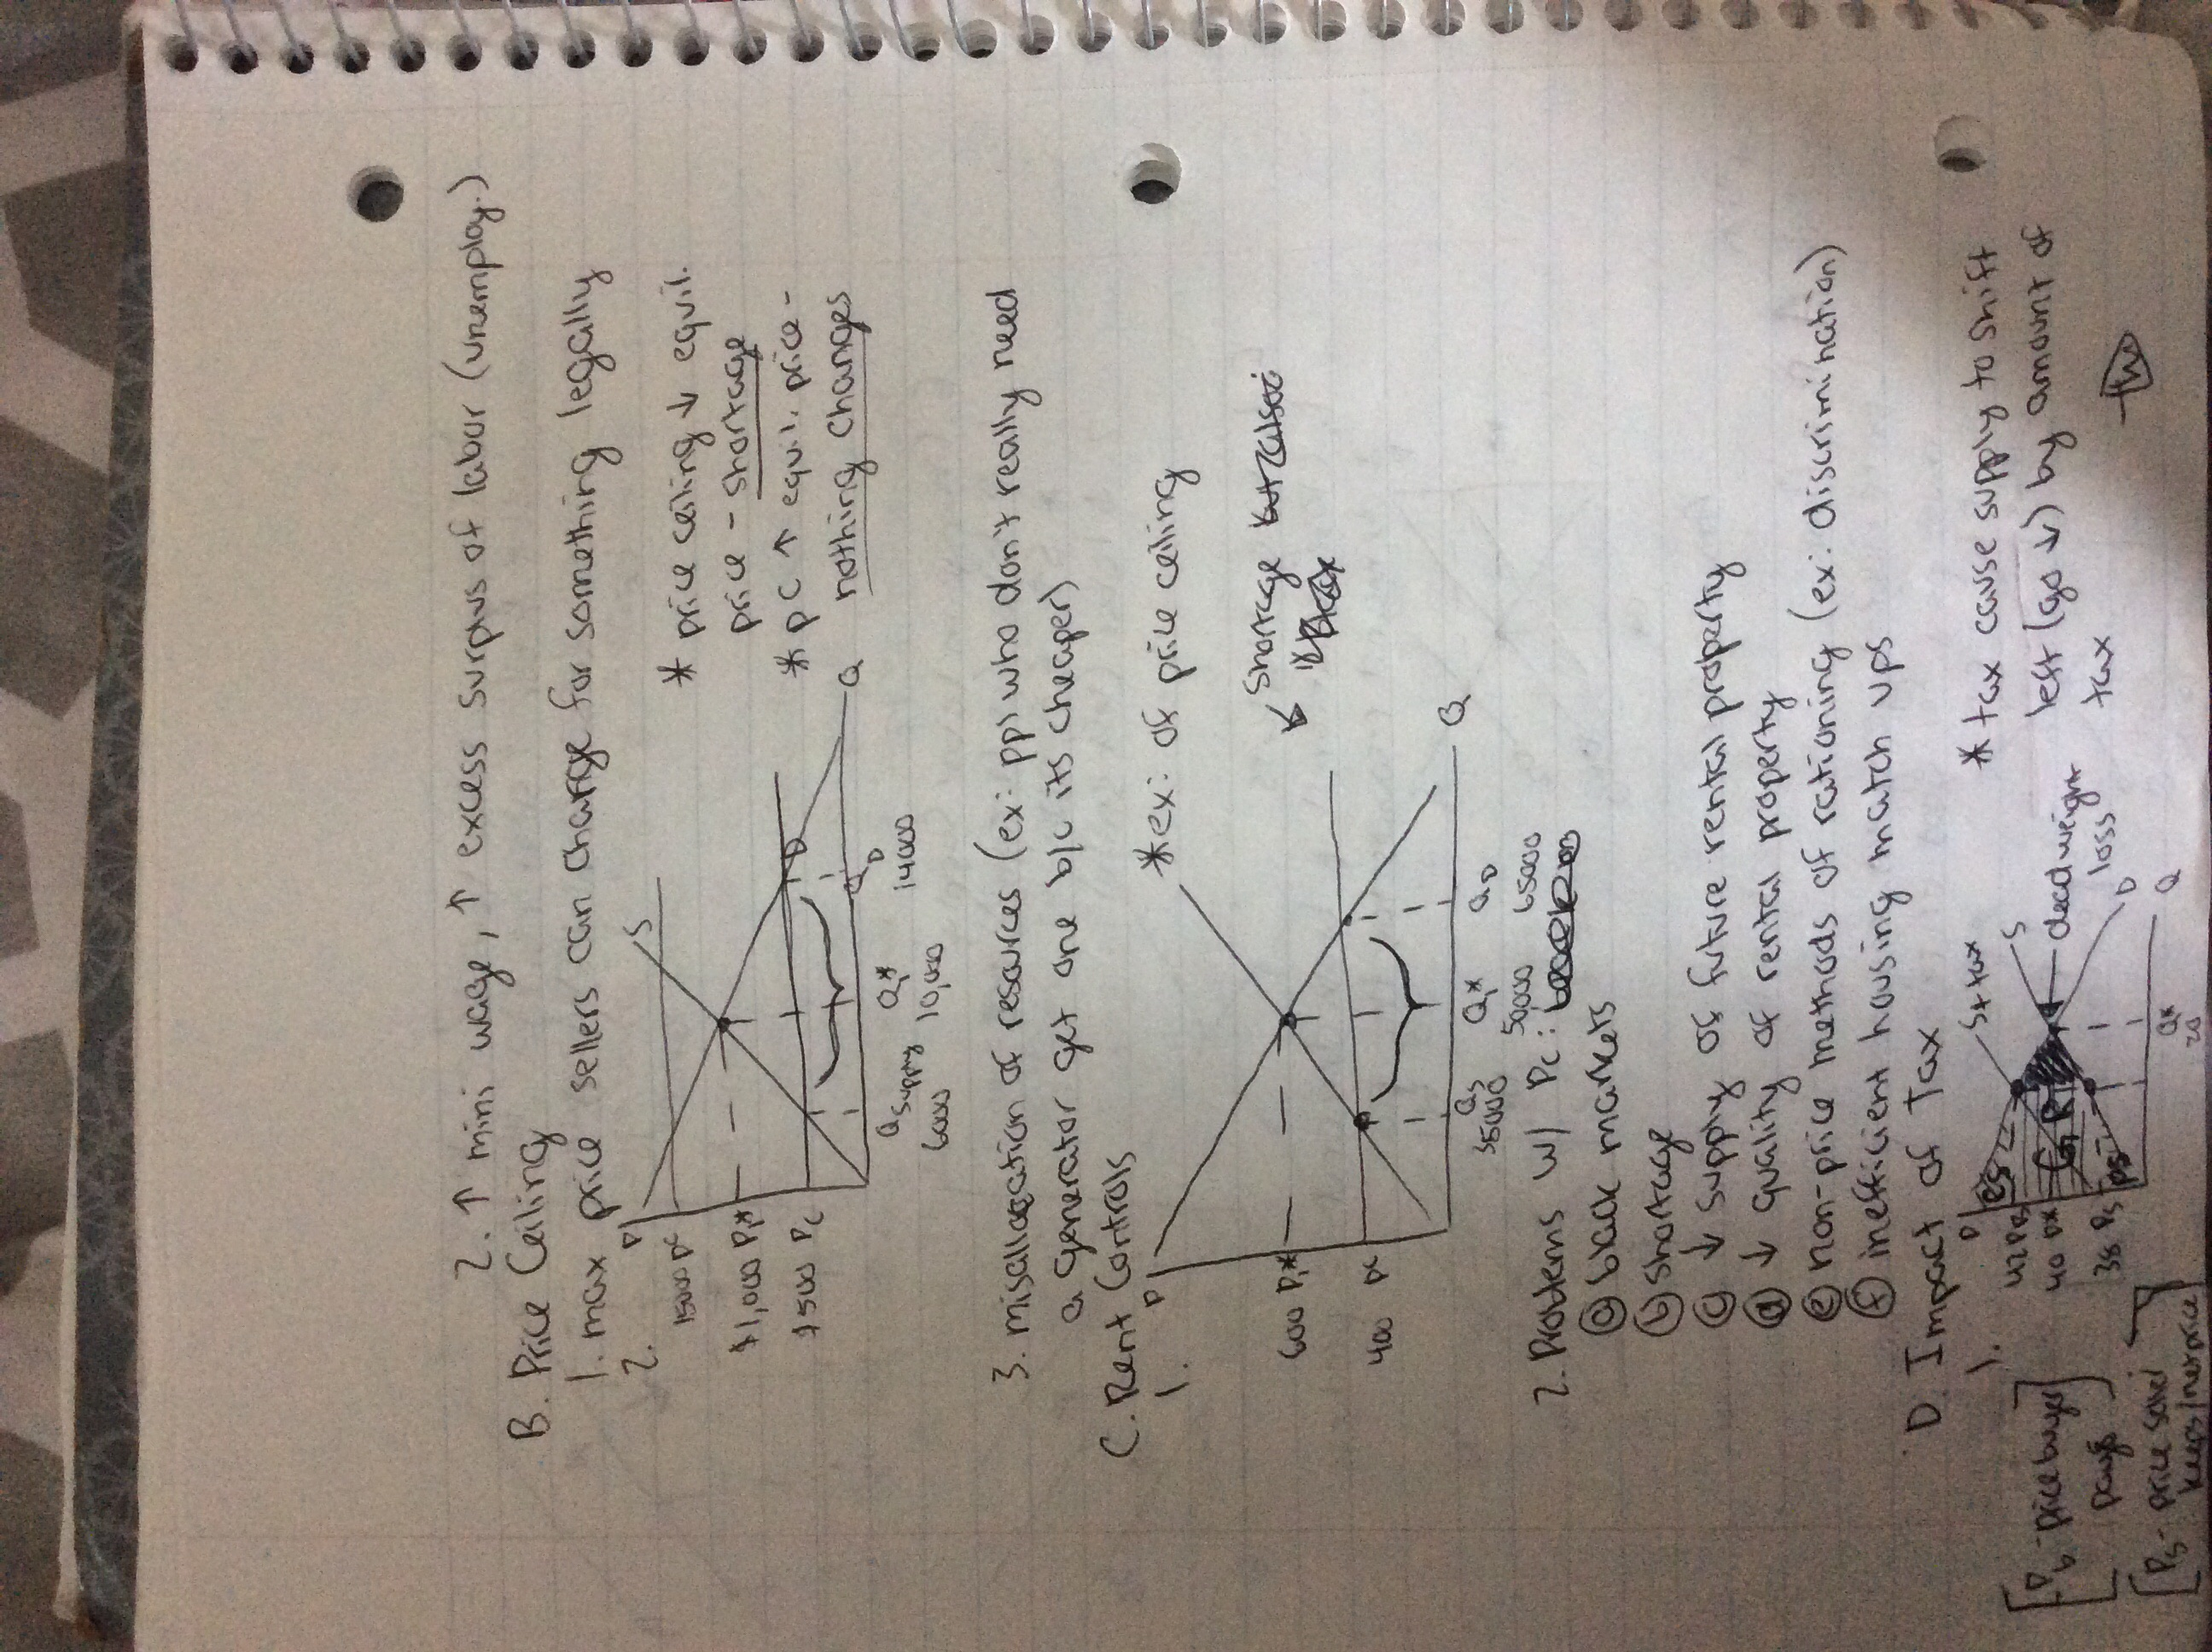 2. ↑ mini wage, ↑ excess surplus of labor (unemploy.)
B. Price Ceiling
1. max price sellers can charge for something legally
2.
P
S
1500 PC
$1,000 P,*
$500 PC
D
Q
Q supply
Q,*
QD
6000
10,000
14000
* price ceiling ↓ equil.
price - shortage
* PC ↑ equil. price -
nothing changes
3. misallocation of resources (ex: ppl who don't really need
a generator get one b/c its cheaper)
C. Rent Controls
1.
* ex: of price ceiling
P
600 P,*
400 PC
Q
QS
Q,*
QD
35000
50000
65000
shortage
2. Problems w/ PC:
a black markets
b shortage
c ↓ supply of future rental property
d ↓ quality of rental property
e non-price methods of rationing (ex: discrimination)
f inefficient housing match ups
D. Impact of Tax
1.
P
S+tax
S
CS
42 PB
40 P*
38 PS
GR
PS
deadweight
loss
D
Q
Q*
20
* tax cause supply to shift
left (go ↓) by amount of
tax
[Pb - price buyer
pays]
[Ps - price seller
keeps/net price]